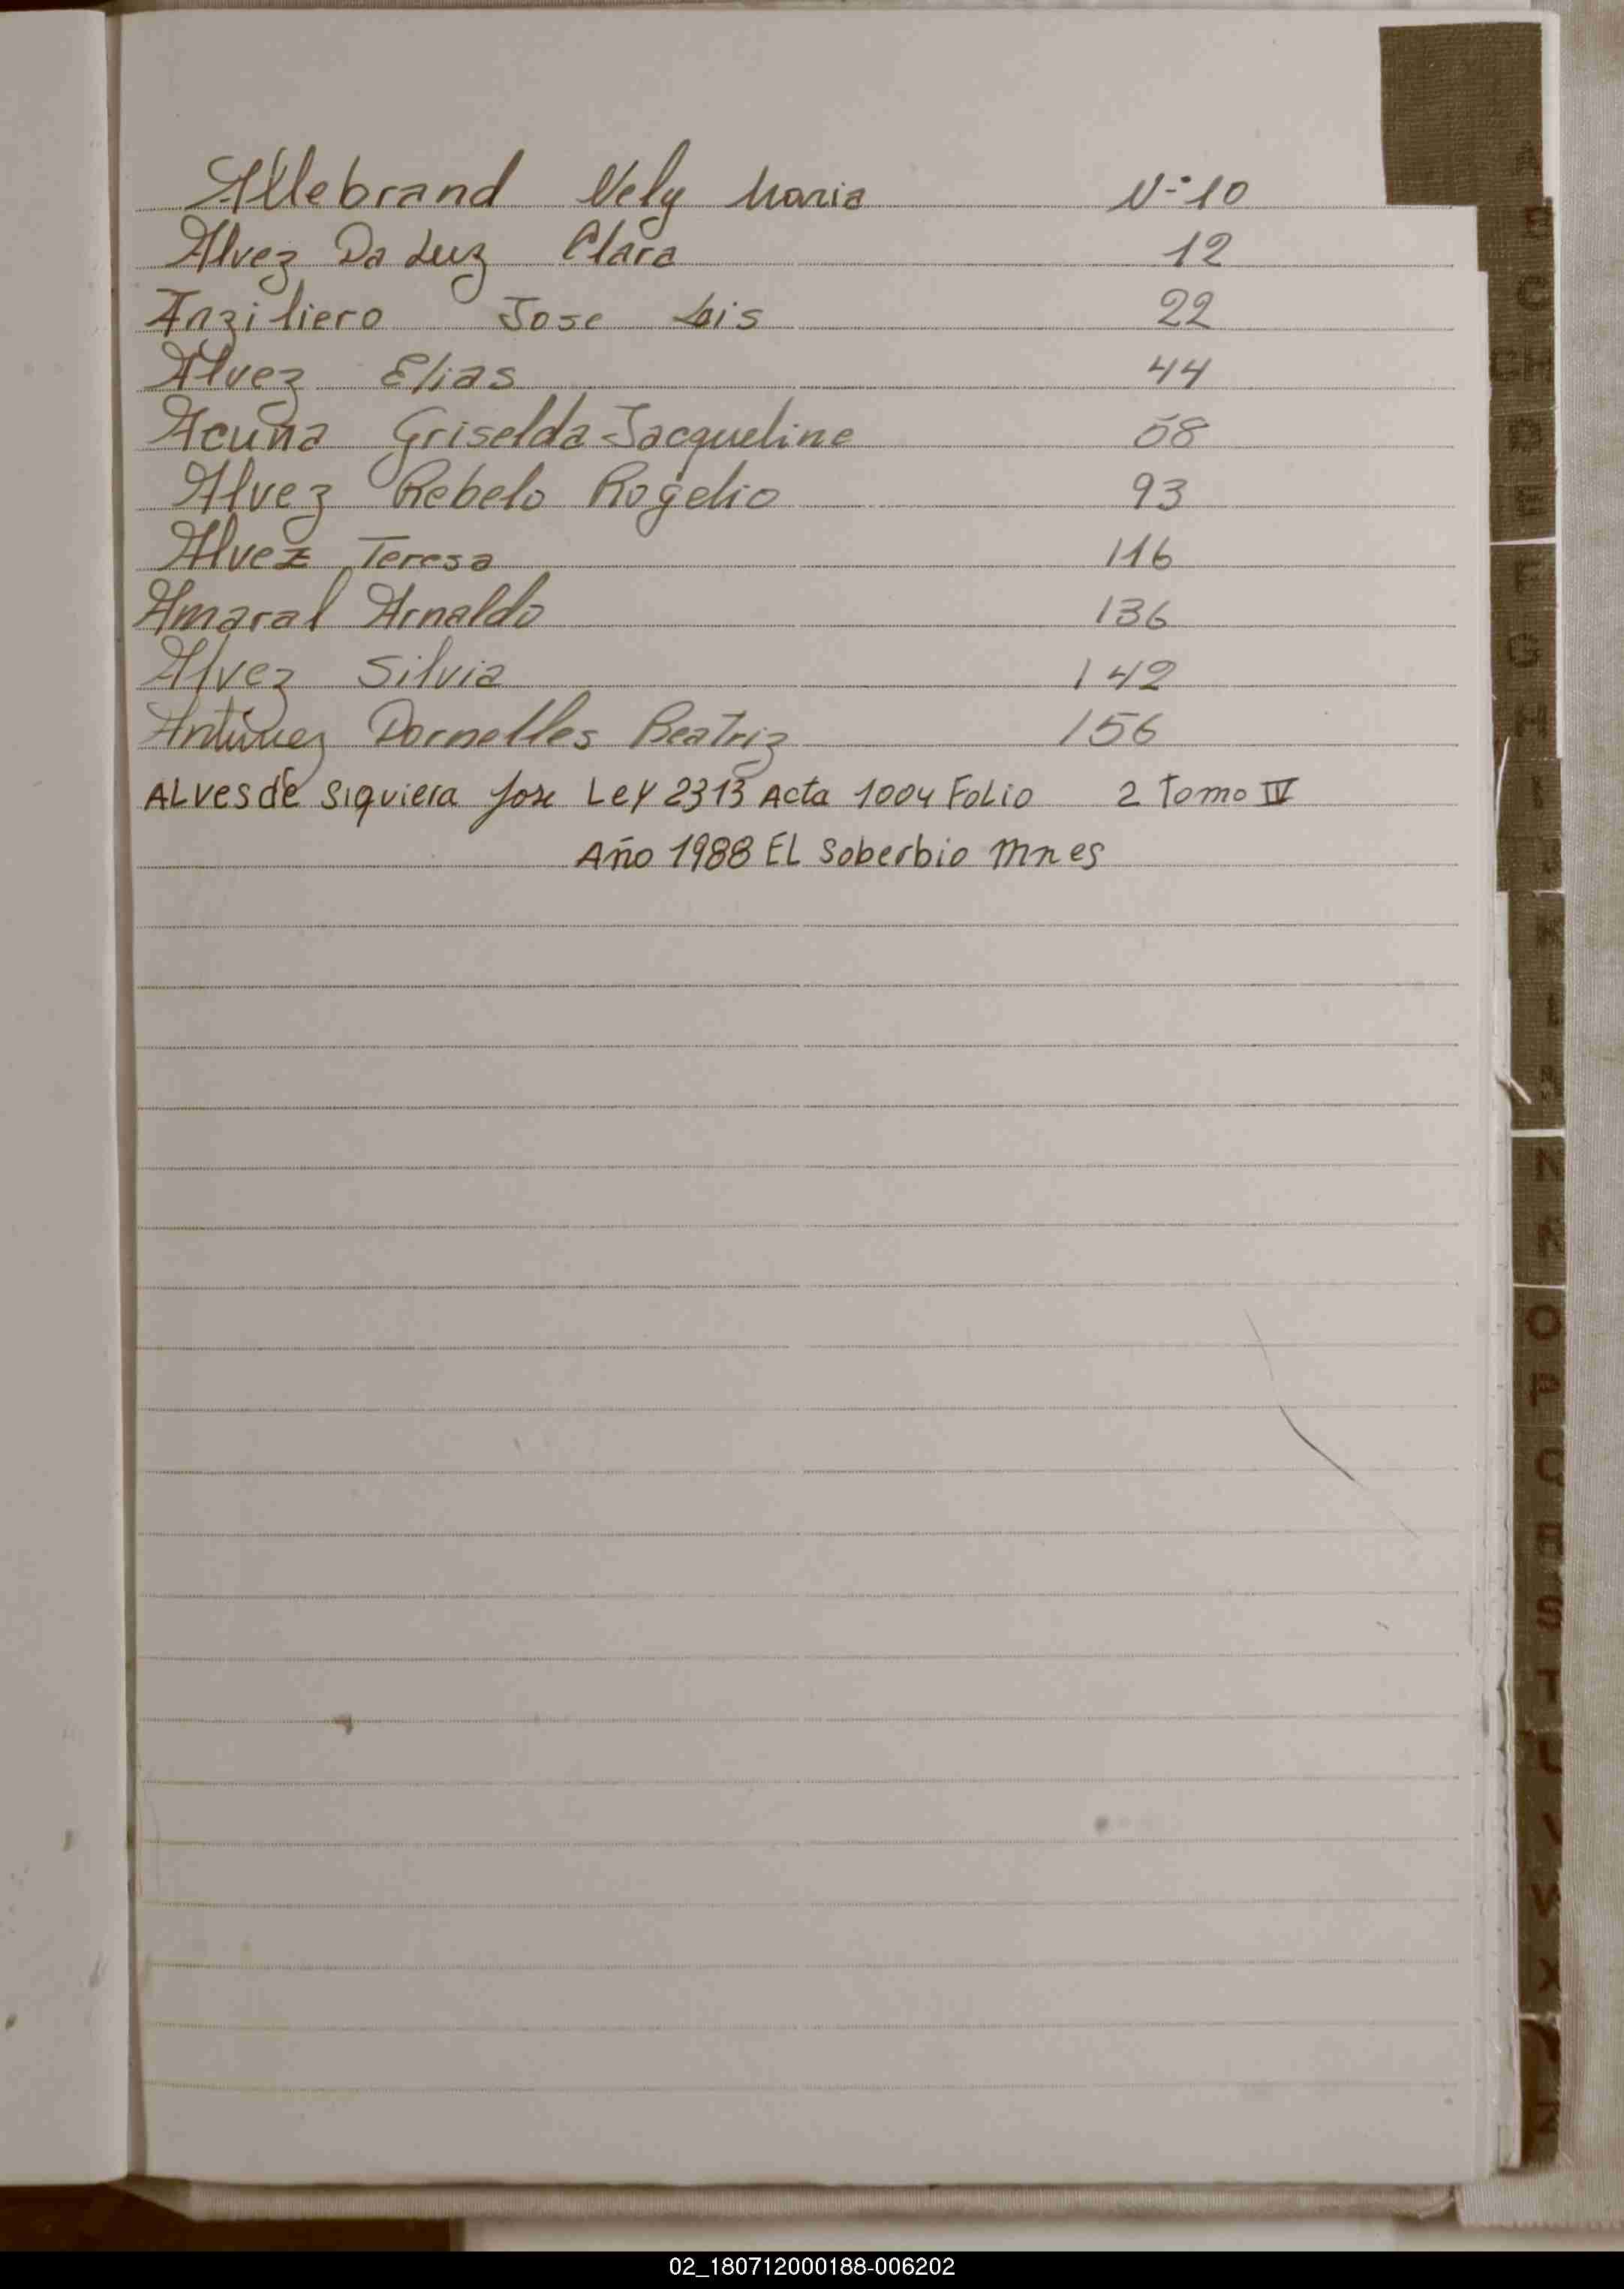 Allebrand Nely Maria N-º 10
Alvez Da Luz Clara 12
Anziliero Jose Lois 22
Alvez Elias 44
Acuña Griselda Jacqueline 58
Alvez Rebelo Rogelio 93
Alvez Teresa 116
Amaral Arnaldo 136
Alvez Silvia 142
Antúnez Dornelles Beatriz 156
ALves de Siquiera Jose Ley 2313 Acta 1004 Folio 2 Tomo IV
Año 1988 EL Soberbio Mnes
A
B
C
CH
D
E
F
G
H
I
J
K
L
LL
M
N
Ñ
O
P
Q
R
S
T
U
V
W
X
Y
Z
02_180712000188-006202